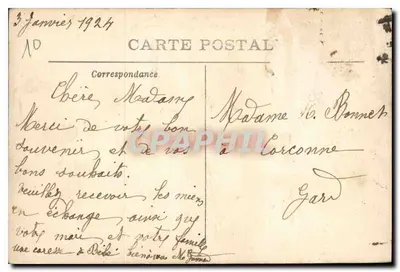 3 Janvier 1924
10
CARTE POSTAL
Correspondance
Chère Madame
Merci de votre bon
souvenir et de vos
bons souhaits.
Veuillez recevoir les miens
en échange ainsi que
votre mari et votre famille
une caresse à Bébé
Madame M. Bonnet
à Corconne
Gard
CPARAMA